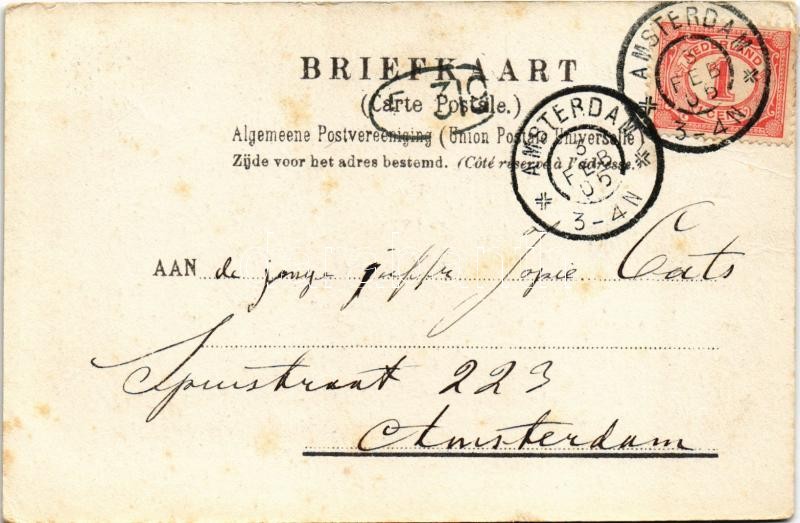 BRIEFKAART
(Carte Postale.)
Algemeene Postvereeniging (Union Postale Universelle)
Zijde voor het adres bestemd. (Côté réservé à l'adresse.
310
AMSTERDAM
5
FEB
05
3-4N
AMSTERDAM
FEB
05
3-4N
NEDERLAND
1
CENT
AAN de jonge juffr Jopie Cats
Spuistraat 223
Amsterdam